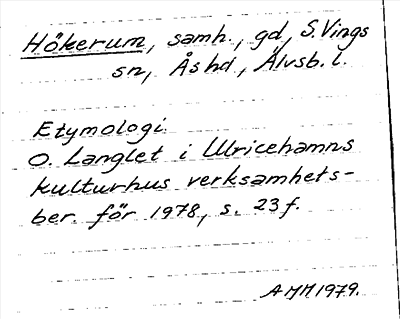 Hökerum, samh., gd, S. Vings
sn, Ås hd, Älvsb. l.
Etymologi.
O. Langlet i Ulricehamns
kulturhus verksamhets-
ber. för 1978, s. 23 f.
AMM 1979.